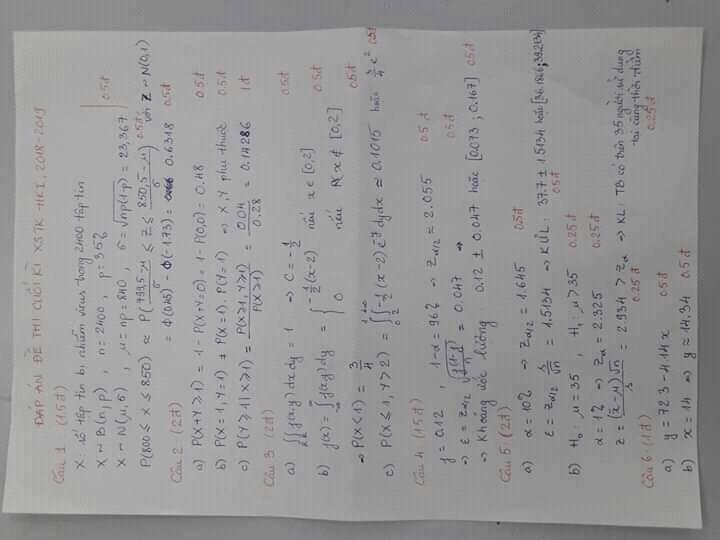 ĐÁP ÁN ĐỀ THI CUỐI KÌ XSTK - HKI, 2018-2019
Câu 1 (1.5đ)
X: số tập tin bị nhiễm virus trong 2400 tập tin
X ~ B(n,p), n = 2400, p = 35%
X ~ N(μ,σ), μ = np = 840, σ = √np(1-p) = 23,367 0.5đ
P(800 ≤ X ≤ 850) ≈ P(799,5-μ/σ ≤ Z ≤ 850,5-μ/σ) 0.5đ với Z ~ N(0,1)
= Φ(0.45) - Φ(-1.73) = 0.6318 0.5đ
Câu 2 (2đ)
a) P(X+Y≥1) = 1 - P(X+Y=0) = 1 - P(0,0) = 0.48 0.5đ
b) P(X=1, Y=1) ≠ P(X=1).P(Y=1) ⇒ X,Y phụ thuộc 0.5đ
c) P(Y≥1|X≥1) = P(X≥1, Y≥1)/P(X≥1) = 0.04/0.28 = 0.14286 1đ
Câu 3 (2đ)
a) ∬ f(x,y) dxdy = 1 ⇒ C = -1/2 0.5đ
b) f(x) = ∫ f(x,y) dy = { -1/2(x-2) nếu x ∈ [0,2] 0.5đ
0 nếu x ∉ [0,2]
⇒ P(X<1) = 3/4 0.5đ
c) P(X≤1, Y>2) = ∫₀¹∫₂^{+∞} -1/2(x-2)e^{-y} dydx ≈ 0.1015 hoặc 3/4 e^{-2} 0.5đ
Câu 4 (1.5đ)
f = 0.12, 1-α = 96% ⇒ Z_{α/2} = 2.055 0.5đ
⇒ ε = Z_{α/2} √f(1-f)/n = 0.047 ⇒ 0.5đ
⇒ Khoảng ước lượng: 0.12 ± 0.047 hoặc [0.073; 0.167] 0.5đ
Câu 5 (2đ)
a) α = 10% ⇒ Z_{α/2} = 1.645 0.5đ
ε = Z_{α/2} s/√n = 1.5134 ⇒ KƯL: 37.7 ± 1.5134 hoặc [36.1866; 39.2134] 0.5đ
b) H₀: μ = 35, H₁: μ > 35 0.25đ
α = 1% ⇒ Z_α = 2.325 0.25đ
Z = (x̄-μ)√n/s = 2.934 > Z_α ⇒ KL: TB có trên 35 người sử dụng
0.25đ tại cùng thời điểm
0.25đ
Câu 6 (1đ)
a) y = 72.3 - 4.14x 0.5đ
b) x = 14 ⇒ y ≈ 14.34 0.5đ